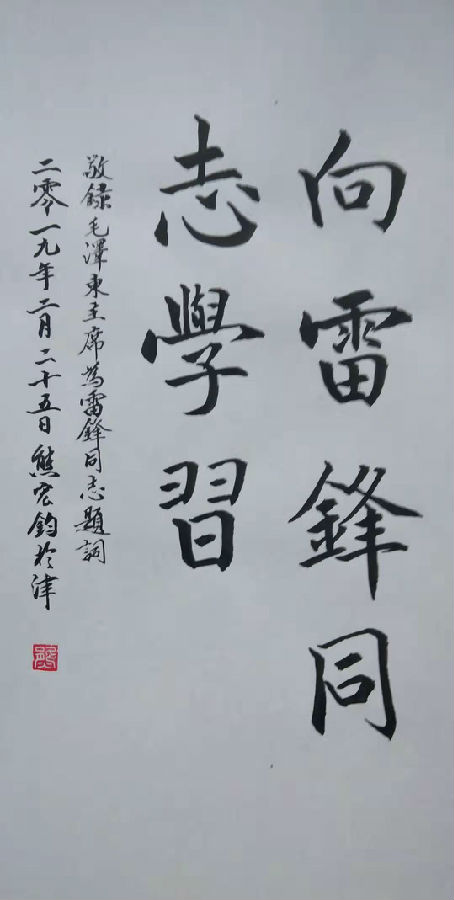 向雷鋒同
志學習
敬録毛澤東主席為雷鋒同志題詞
二零一九年二月二十五日熊宏鈞於津